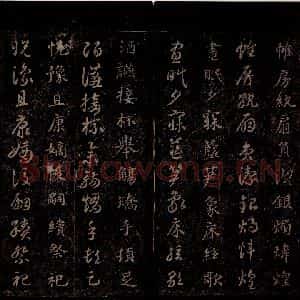 帷房紈扇員潔銀燭煒煌
帷房紈扇員潔銀燭煒煌
晝眠夕寐藍笋象床弦歌
晝眠夕寐藍笋象床弦歌
酒讌接杯舉觴矯手頓足
酒讌接杯舉觴矯手頓足
悅豫且康嫡後嗣續祭祀
悅豫且康嫡後嗣續祭祀
Shufawang.CN